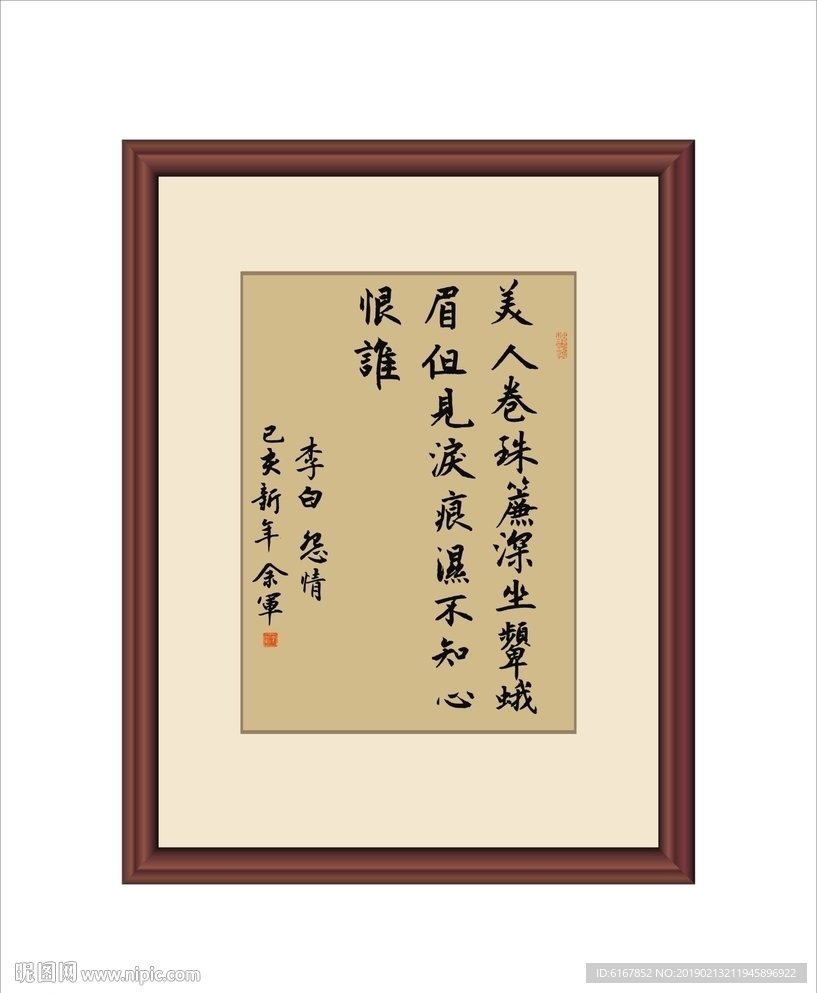 美人卷珠簾深坐顰蛾
眉但見淚痕濕不知心
恨誰
李白 怨情
己亥新年 余軍
昵图网 www.nipic.com
ID:6167852 NO:20190213211945896922